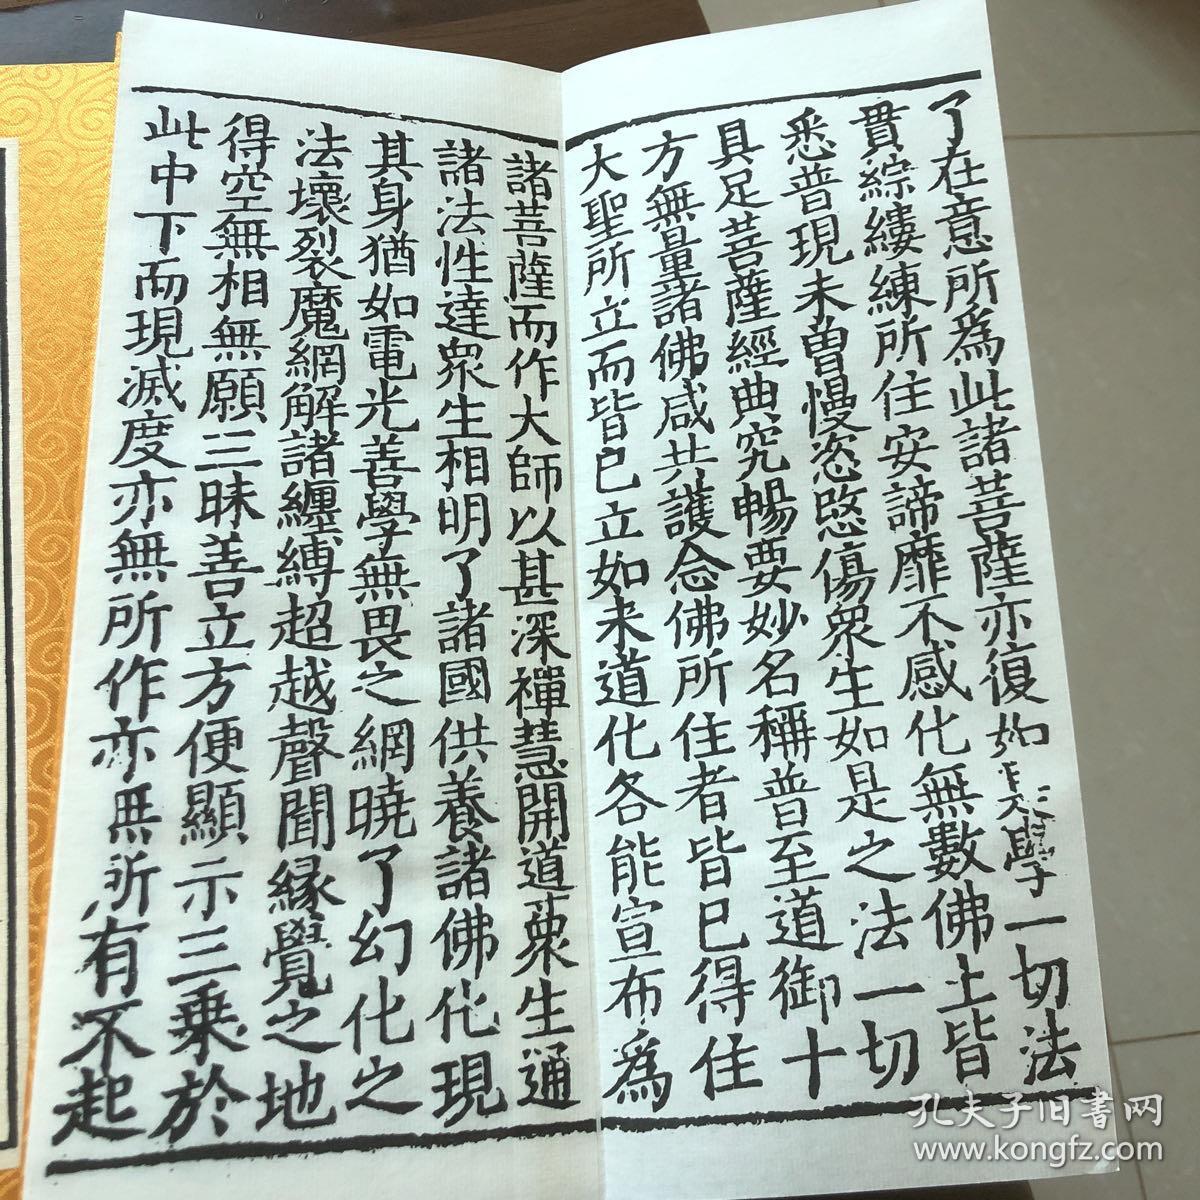 了在意所為此諸菩薩亦復如是學一切法
貫綜縷練所住安諦靡不感化無數佛土皆
悉普現未曾慢恣愍傷眾生如是之法一切
具足菩薩經典究暢要妙名稱普至道御十
方無量諸佛咸共護念佛所住者皆已得住
大聖所立而皆已立如来道化各能宣布為
諸菩薩而作大師以甚深禪慧開道衆生通
諸法性達眾生相明了諸國供養諸佛化現
其身猶如電光善學無畏之網曉了幻化之
法壞裂魔網解諸纏縛超越聲聞緣覺之地
得空無相無願三昧善立方便顯示三乗於
此中下而現滅度亦無所作亦無所有不起
孔夫子旧書网
www.kongfz.com